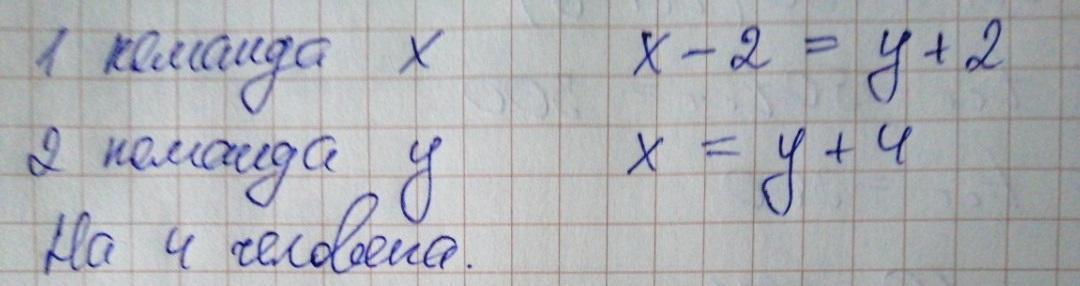 1 команда x x - 2 = y + 2
2 команда y x = y + 4
На 4 человека.